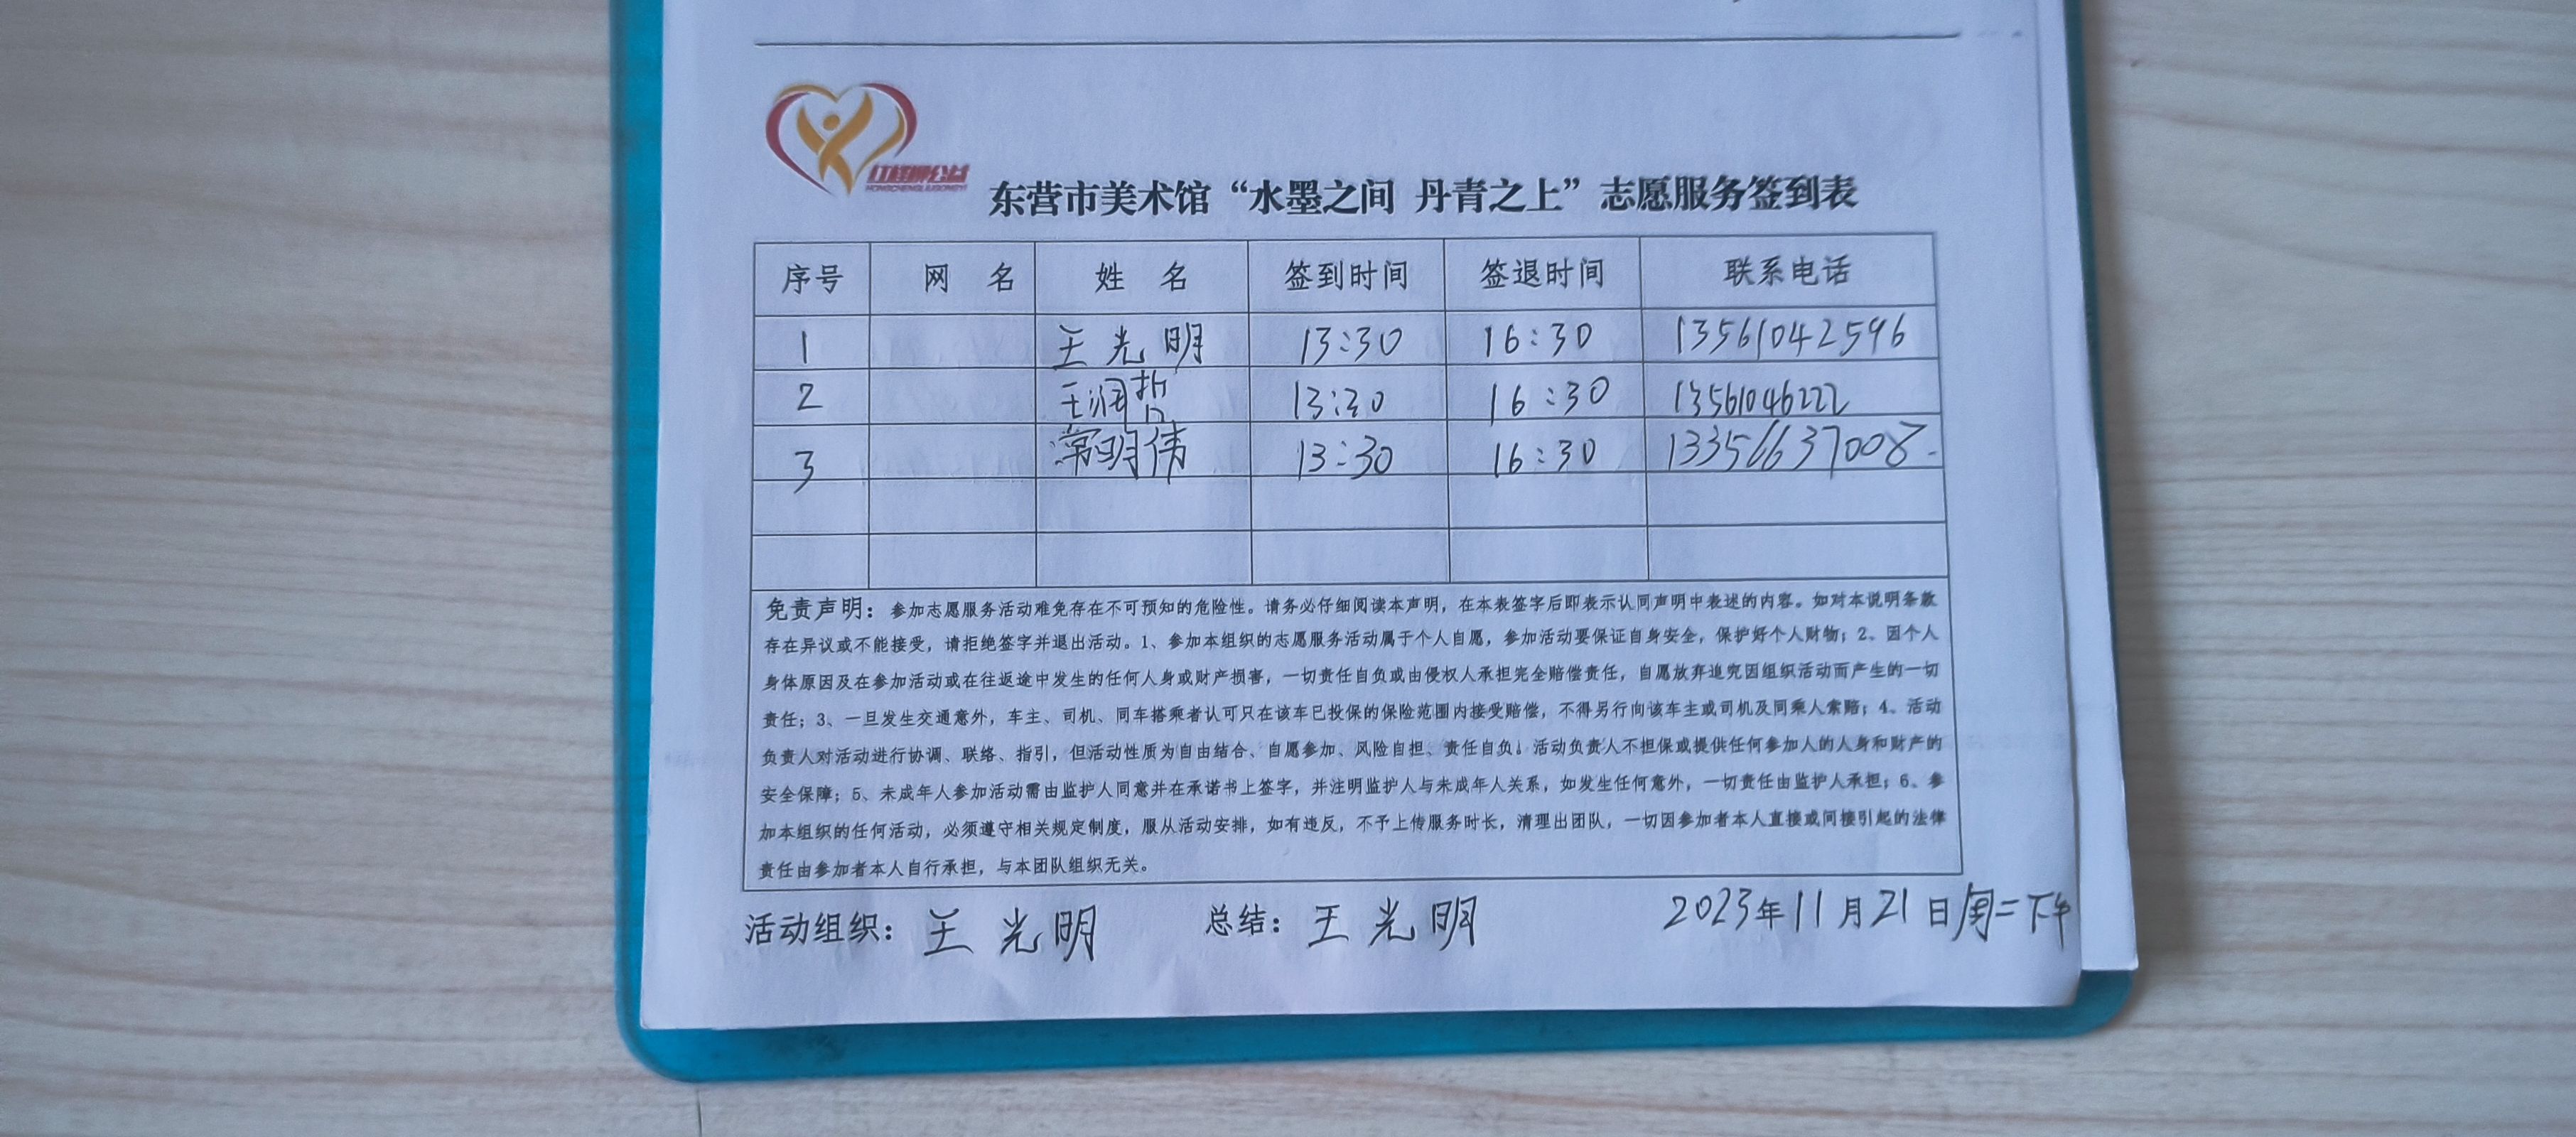 红柽柳公益
HONGCHENGLIUGONGYI
东营市美术馆“水墨之间 丹青之上”志愿服务签到表
序号 网 名 姓 名 签到时间 签退时间 联系电话
1 王光明 13:30 16:30 13561042596
2 王润哲 13:30 16:30 13561046222
3 常明伟 13:30 16:30 13356637008
免责声明：参加志愿服务活动难免存在不可预知的危险性。请务必仔细阅读本声明，在本表签字后即表示认同声明中表述的内容。如对本说明条款
存在异议或不能接受，请拒绝签字并退出活动。1、参加本组织的志愿服务活动属于个人自愿，参加活动要保证自身安全，保护好个人财物；2、因个人
身体原因及在参加活动或在往返途中发生的任何人身或财产损害，一切责任自负或由侵权人承担完全赔偿责任，自愿放弃追究因组织活动而产生的一切
责任；3、一旦发生交通意外，车主、司机、同车搭乘者认可只在该车已投保的保险范围内接受赔偿，不得另行向该车主或司机及同乘人索赔；4、活动
负责人对活动进行协调、联络、指引，但活动性质为自由结合、自愿参加、风险自担、责任自负。活动负责人不担保或提供任何参加人的人身和财产的
安全保障；5、未成年人参加活动需由监护人同意并在承诺书上签字，并注明监护人与未成年人关系，如发生任何意外，一切责任由监护人承担；6、参
加本组织的任何活动，必须遵守相关规定制度，服从活动安排，如有违反，不予上传服务时长，清理出团队，一切因参加者本人直接或间接引起的法律
责任由参加者本人自行承担，与本团队组织无关。
活动组织：王光明 总结：王光明 2023年11月21日周二下午